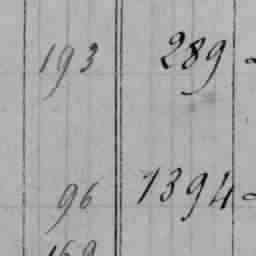 193 289
96 1394
169